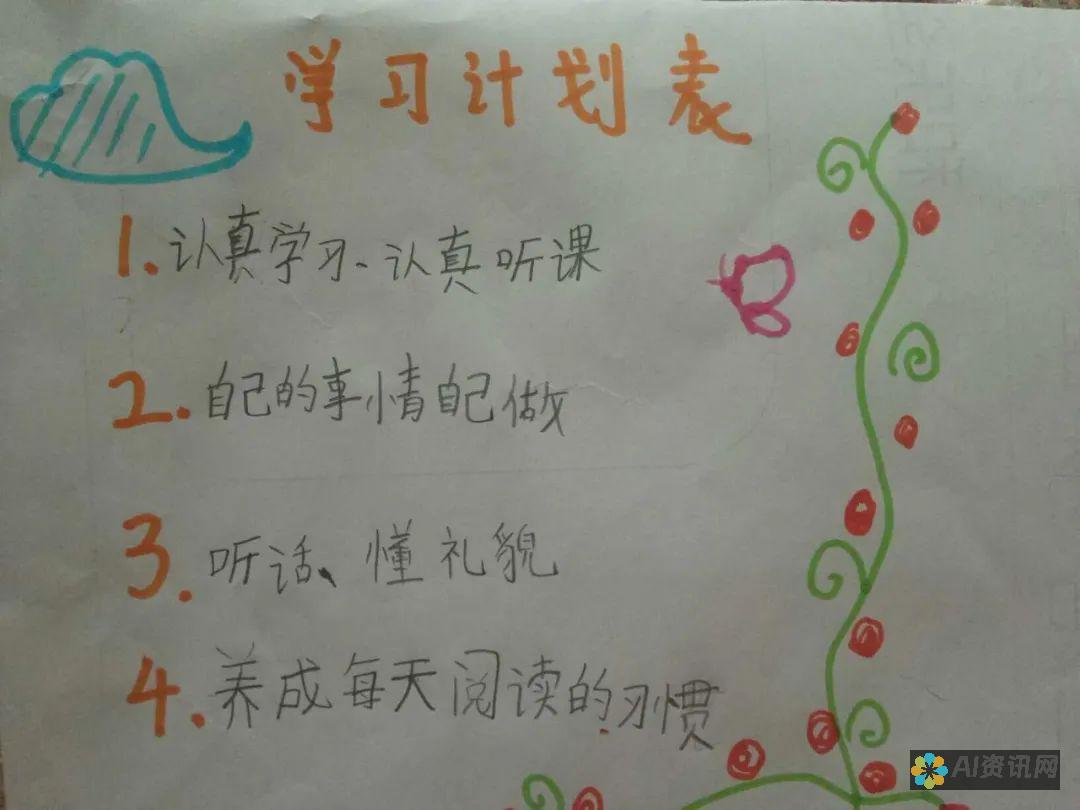 学习计划表
1.认真学习、认真听课
2.自己的事情自己做
3.听话、懂礼貌
4.养成每天阅读的习惯
AI资讯网